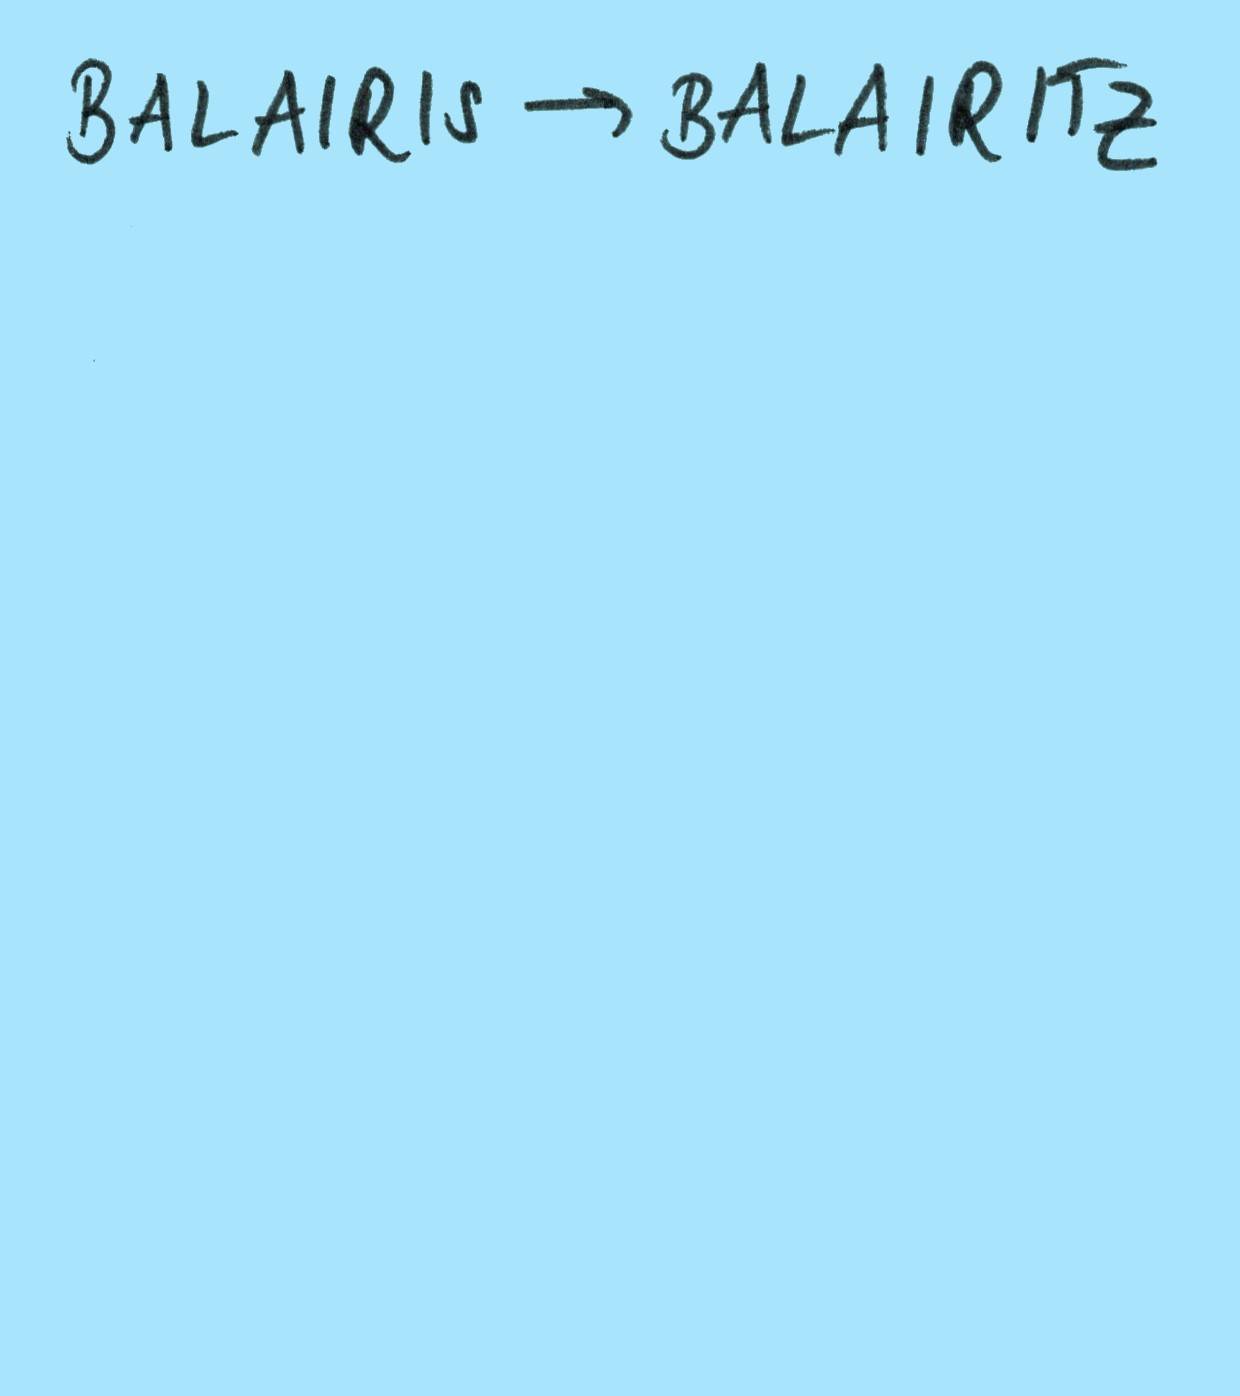 BALAIRIS → BALAIRITZ